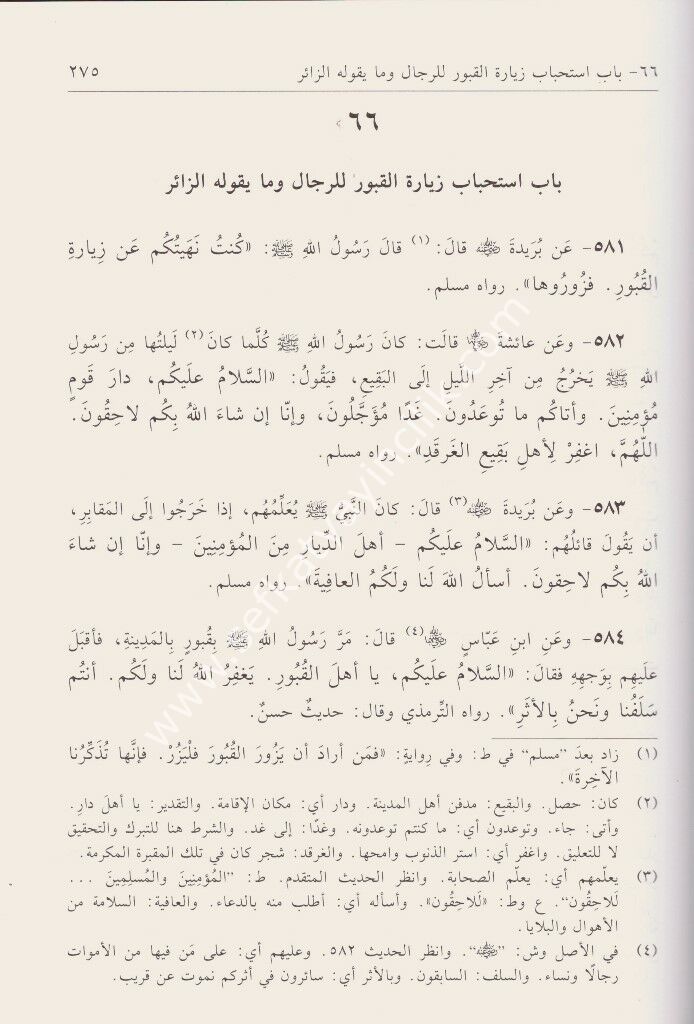 ٦٦- باب استحباب زيارة القبور للرجال وما يقوله الزائر ٢٧٥
٦٦
باب استحباب زيارة القبور للرجال وما يقوله الزائر
٥٨١- عَن بُرَيدةَ رضي الله عنه قالَ: (١) قالَ رَسُولُ اللهِ ﷺ: «كُنتُ نَهَيتُكُم عَن زِيارةِ
القُبُورِ. فزُورُوها». رواه مسلم.
٥٨٢- وعَن عائشةَ رضي الله عنها قالَت: كانَ رَسُولُ اللهِ ﷺ كُلَّما كانَ(٢) لَيلتُها مِن رَسُولِ
اللهِ ﷺ يَخرُجُ مِن آخِرِ اللَّيلِ إلَى البَقِيعِ، فيَقُولُ: «السَّلامُ علَيكُم، دارَ قَومٍ
مُؤمِنِينَ. وأتاكُم ما تُوعَدُونَ. غَدًا مُؤَجَّلُونَ، وإنّا إن شاءَ اللهُ بِكُم لاحِقُونَ.
اللَّهُمَّ، اغفِرْ لِأهلِ بَقِيعِ الغَرقَدِ». رواه مسلم.
٥٨٣- وعَن بُرَيدةَ رضي الله عنه(٣) قالَ: كانَ النَّبِيُّ ﷺ يُعَلِّمُهُم، إذا خَرَجُوا إلَى المَقابِرِ،
أن يَقُولَ قائلُهُم: «السَّلامُ علَيكُم – أهلَ الدِّيارِ مِنَ المُؤمِنِينَ – وإنّا إن شاءَ
اللهُ بِكُم لاحِقونَ. أسألُ اللهَ لَنا ولَكُمُ العافِيةَ». رواه مسلم.
٥٨٤- وعَنِ ابنِ عَبّاسٍ رضي الله عنهما(٤) قالَ: مَرَّ رَسُولُ اللهِ ﷺ بِقُبُورٍ بِالمَدِينةِ، فأقبَلَ
علَيهِم بِوَجهِهِ فقالَ: «السَّلامُ علَيكُم، يا أهلَ القُبُورِ. يَغفِرُ اللهُ لَنا ولَكُم. أنتُم
سَلَفُنا ونَحنُ بِالأثَرِ». رواه التِّرمذي وقال: حديثٌ حسنٌ.
(١) زاد بعدَ "مسلم" في ط: وفي رِوايةٍ: «فمَن أرادَ أن يَزُورَ القُبُورَ فلْيَزُرْ. فإنَّها تُذَكِّرُنا
الآخِرةَ».
(٢) كان: حصل. والبقيع: مدفن أهل المدينة. ودار أي: مكان الإقامة. والتقدير: يا أهلَ دارِ.
وأتى: جاء. وتوعدون أي: ما كنتم توعدونه. وغدًا: إلى غد. والشرط هنا للتبرك والتحقيق
لا للتعليق. واغفر أي: استر الذنوب وامحها. والغرقد: شجر كان في تلك المقبرة المكرمة.
(٣) يعلّمهم أي: يعلّم الصحابة. وانظر الحديث المتقدم. ط: "المُؤمِنِينَ والمُسلِمِينَ ...
لَلاحِقُون". ع وط: «لَلاحِقُون». وأسأله أي: أطلب منه بالدعاء. والعافية: السلامة من
الأهوال والبلايا.
(٤) في الأصل وش: "رضي الله عنه". وانظر الحديث ٥٨٢. وعليهم أي: على مَن فيها من الأموات
رجالًا ونساء. والسلف: السابقون. وبالأثر أي: سائرون في أثركم نموت عن قريب.
www.sefkatyayincilik.com